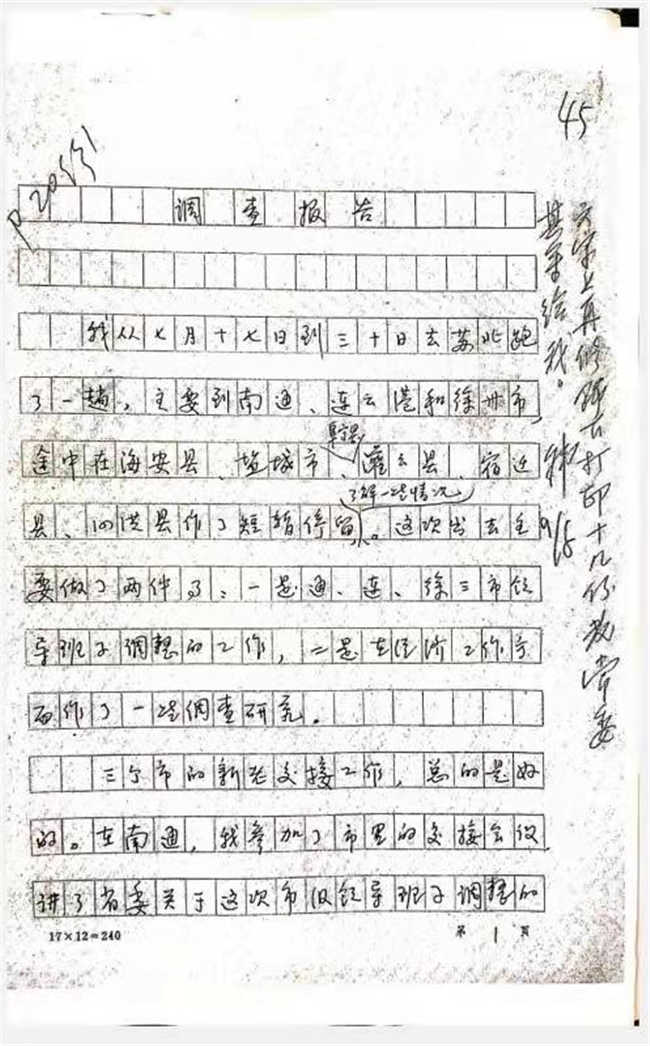 45
调查报告
我从七月十七日到三十日去苏北跑
了一趟，主要到南通、连云港和徐州市，
阜宁县、
途中在海安县、盐城市、灌云县、宿迁
了解一些情况
县、泗洪县作了短暂停留。这次出去主
要做了两件事：一是通、连、徐三市领
导班子调整的工作，二是在经济工作方
面作了一些调查研究。
三个市的新老交接工作，总的是好
的。在南通，我参加了市里的交接会议，
讲了省委关于这次市级领导班子调整的
17×12=240
第 1 页
文字上再修改打印十几份放常委
其余给我。